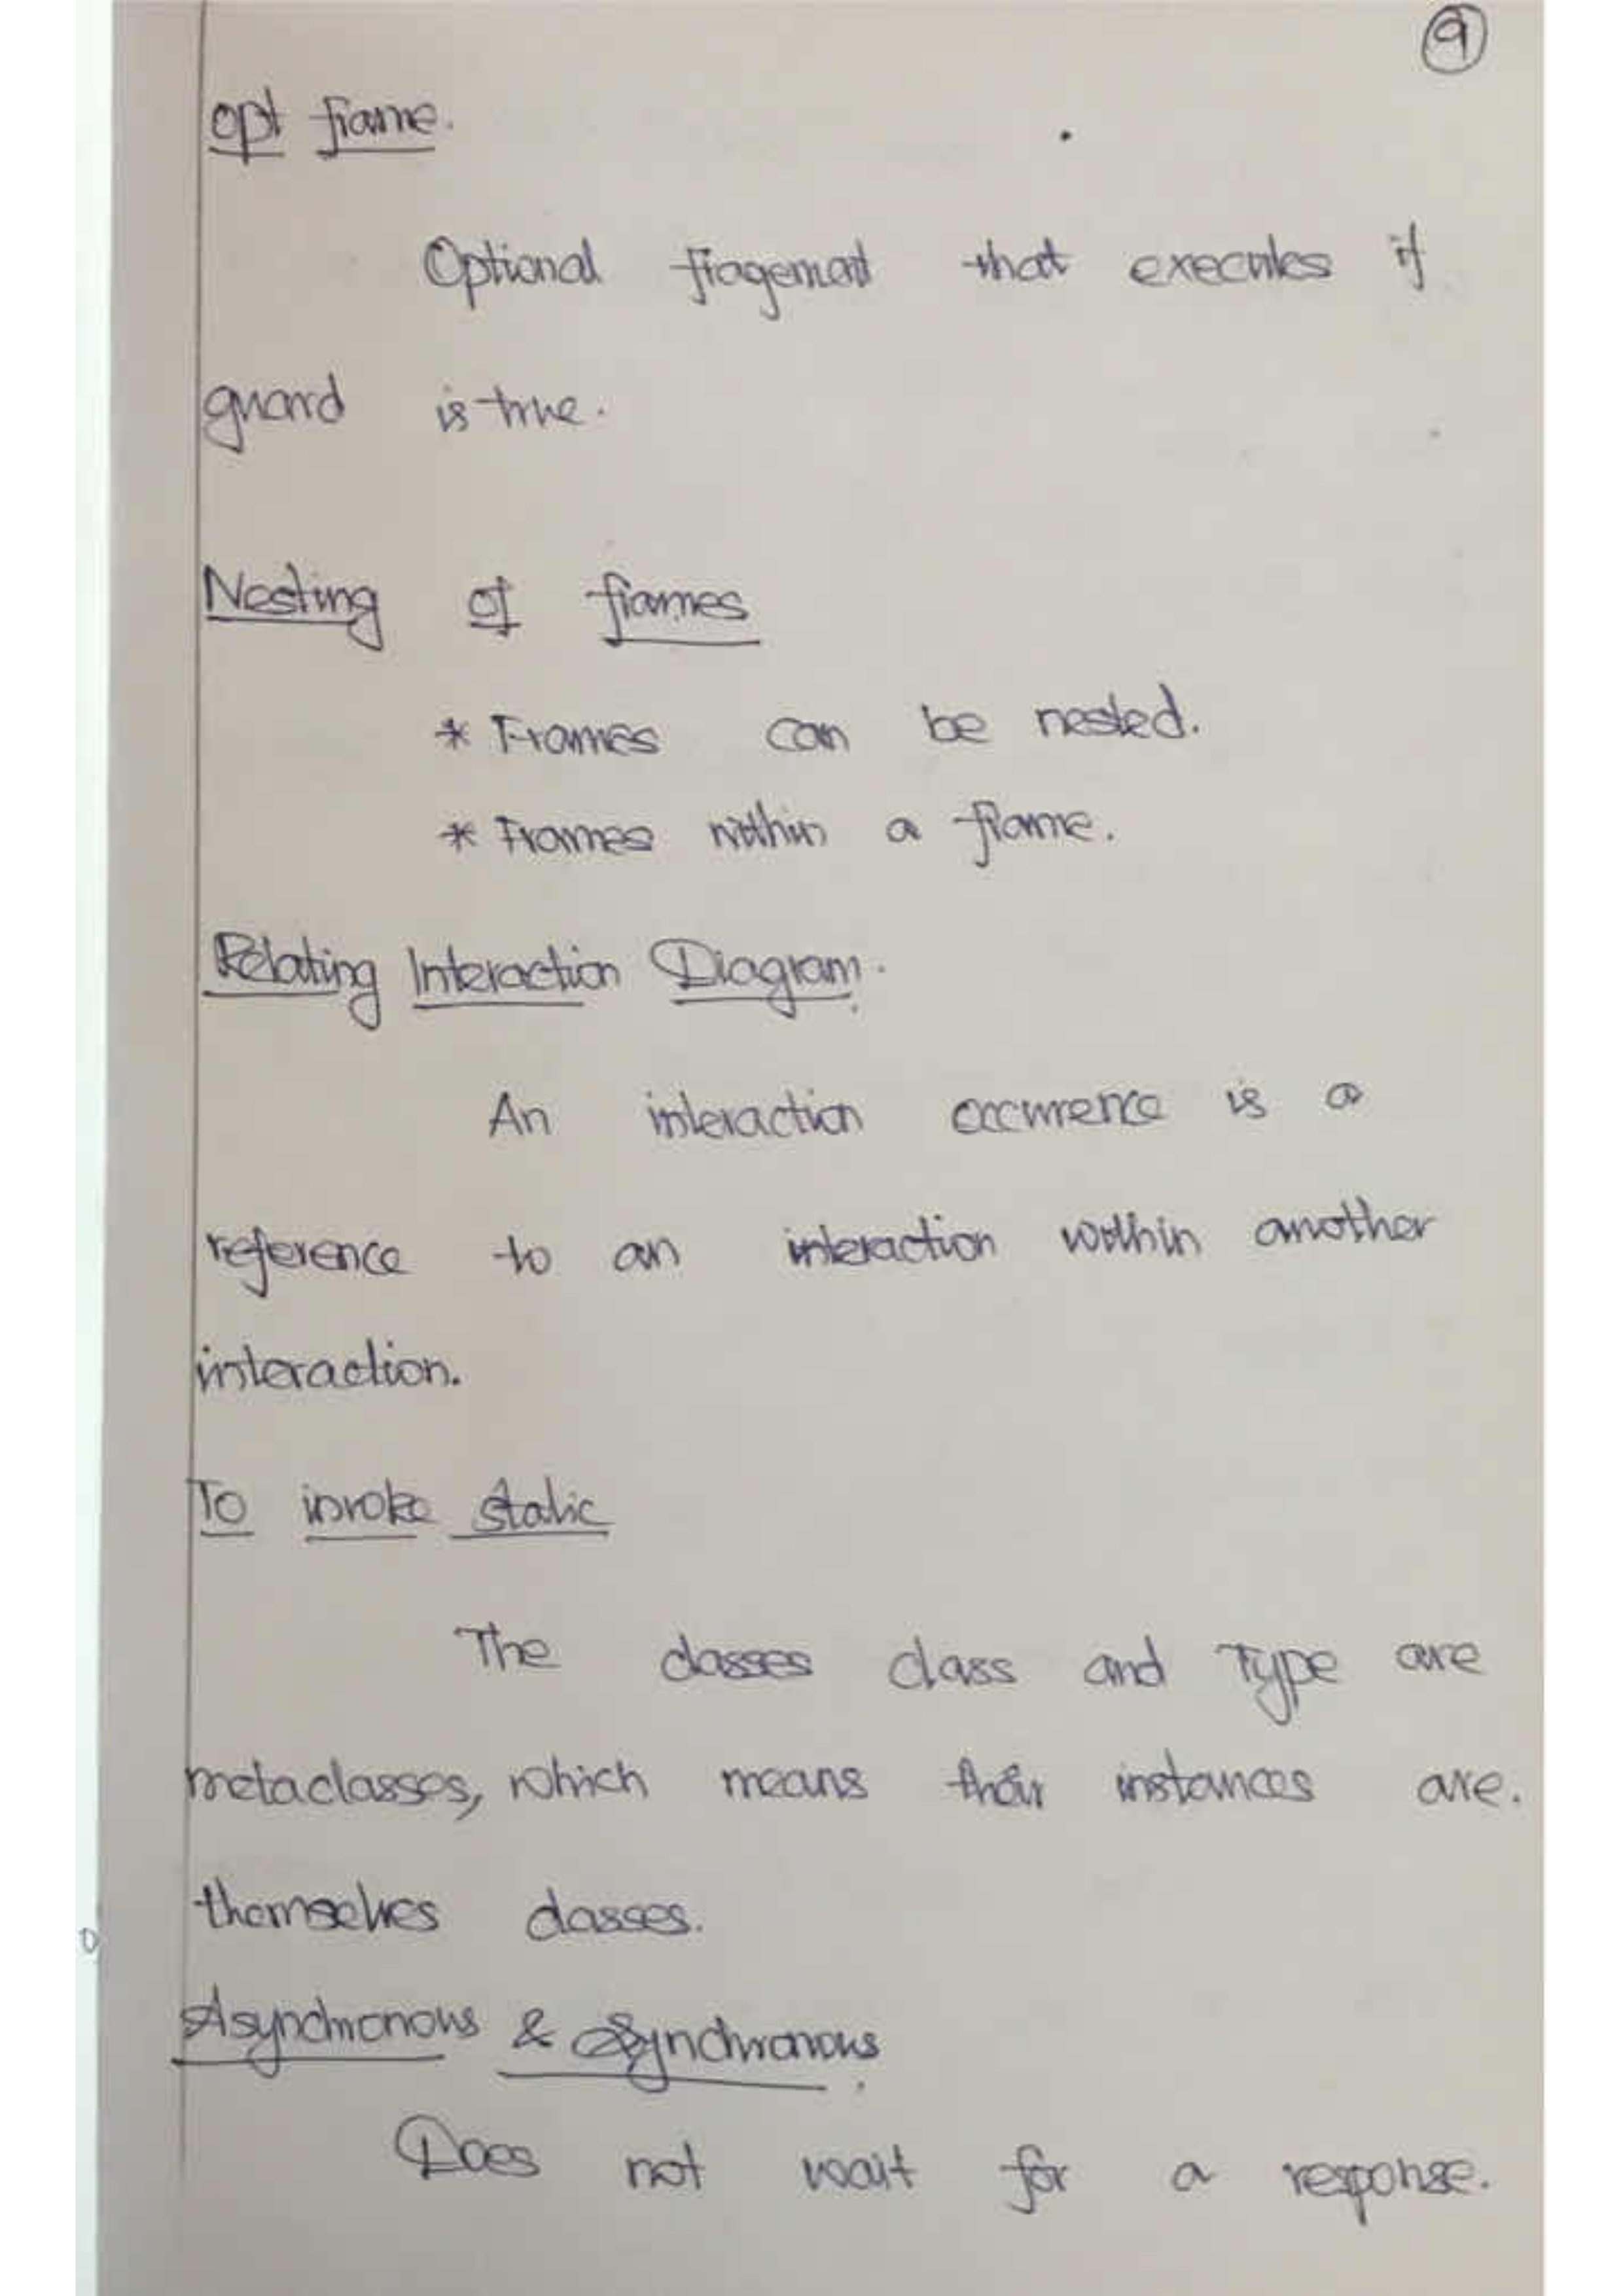 9
opt frame.
Optional fragement that executes if
guard is true.
Nesting of frames
* Frames can be nested.
* Frames within a frame.
Relating Interaction Diagram.
An interaction occurrence is a
reference to an interaction within another
interaction.
To invoke static
The classes class and Type are
metaclasses, which means their instances are.
themselves classes.
Asynchronous & Synchronous
Does not wait for a response.